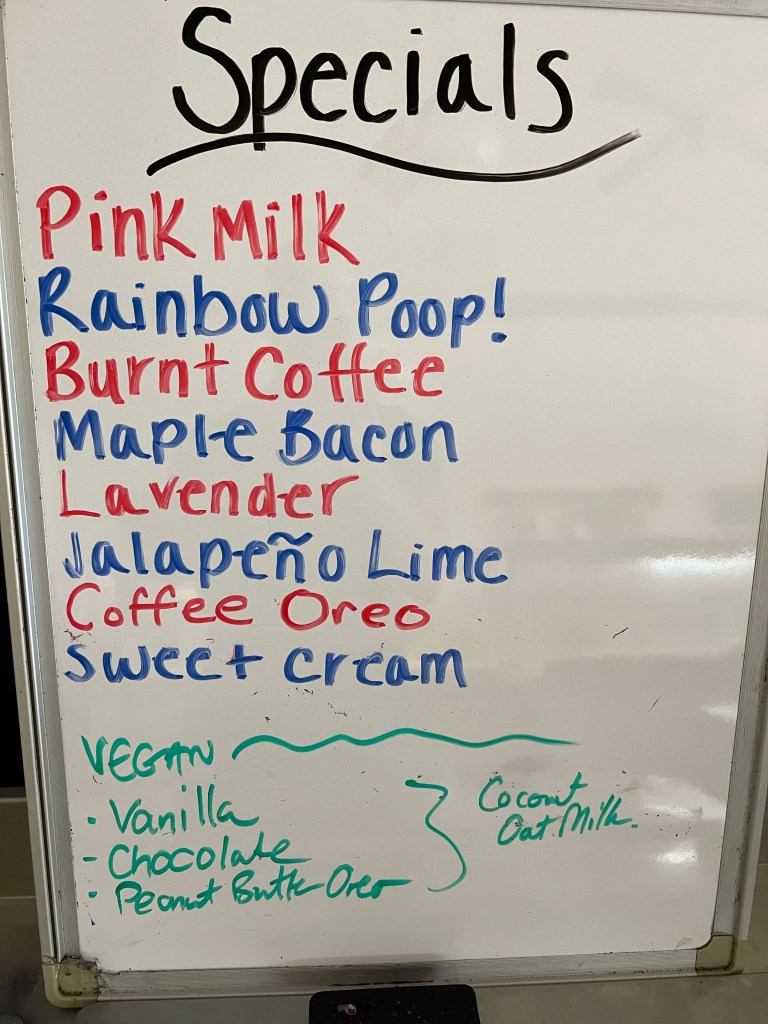 Specials
Pink Milk
Rainbow Poop!
Burnt Coffee
Maple Bacon
Lavender
Jalapeño Lime
Coffee Oreo
Sweet Cream
VEGAN
- Vanilla
- Chocolate
- Peanut Butter Oreo
Coconut
Oat Milk.